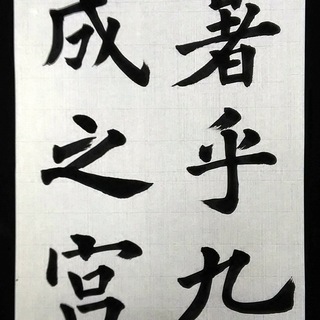 著乎九
成之宮